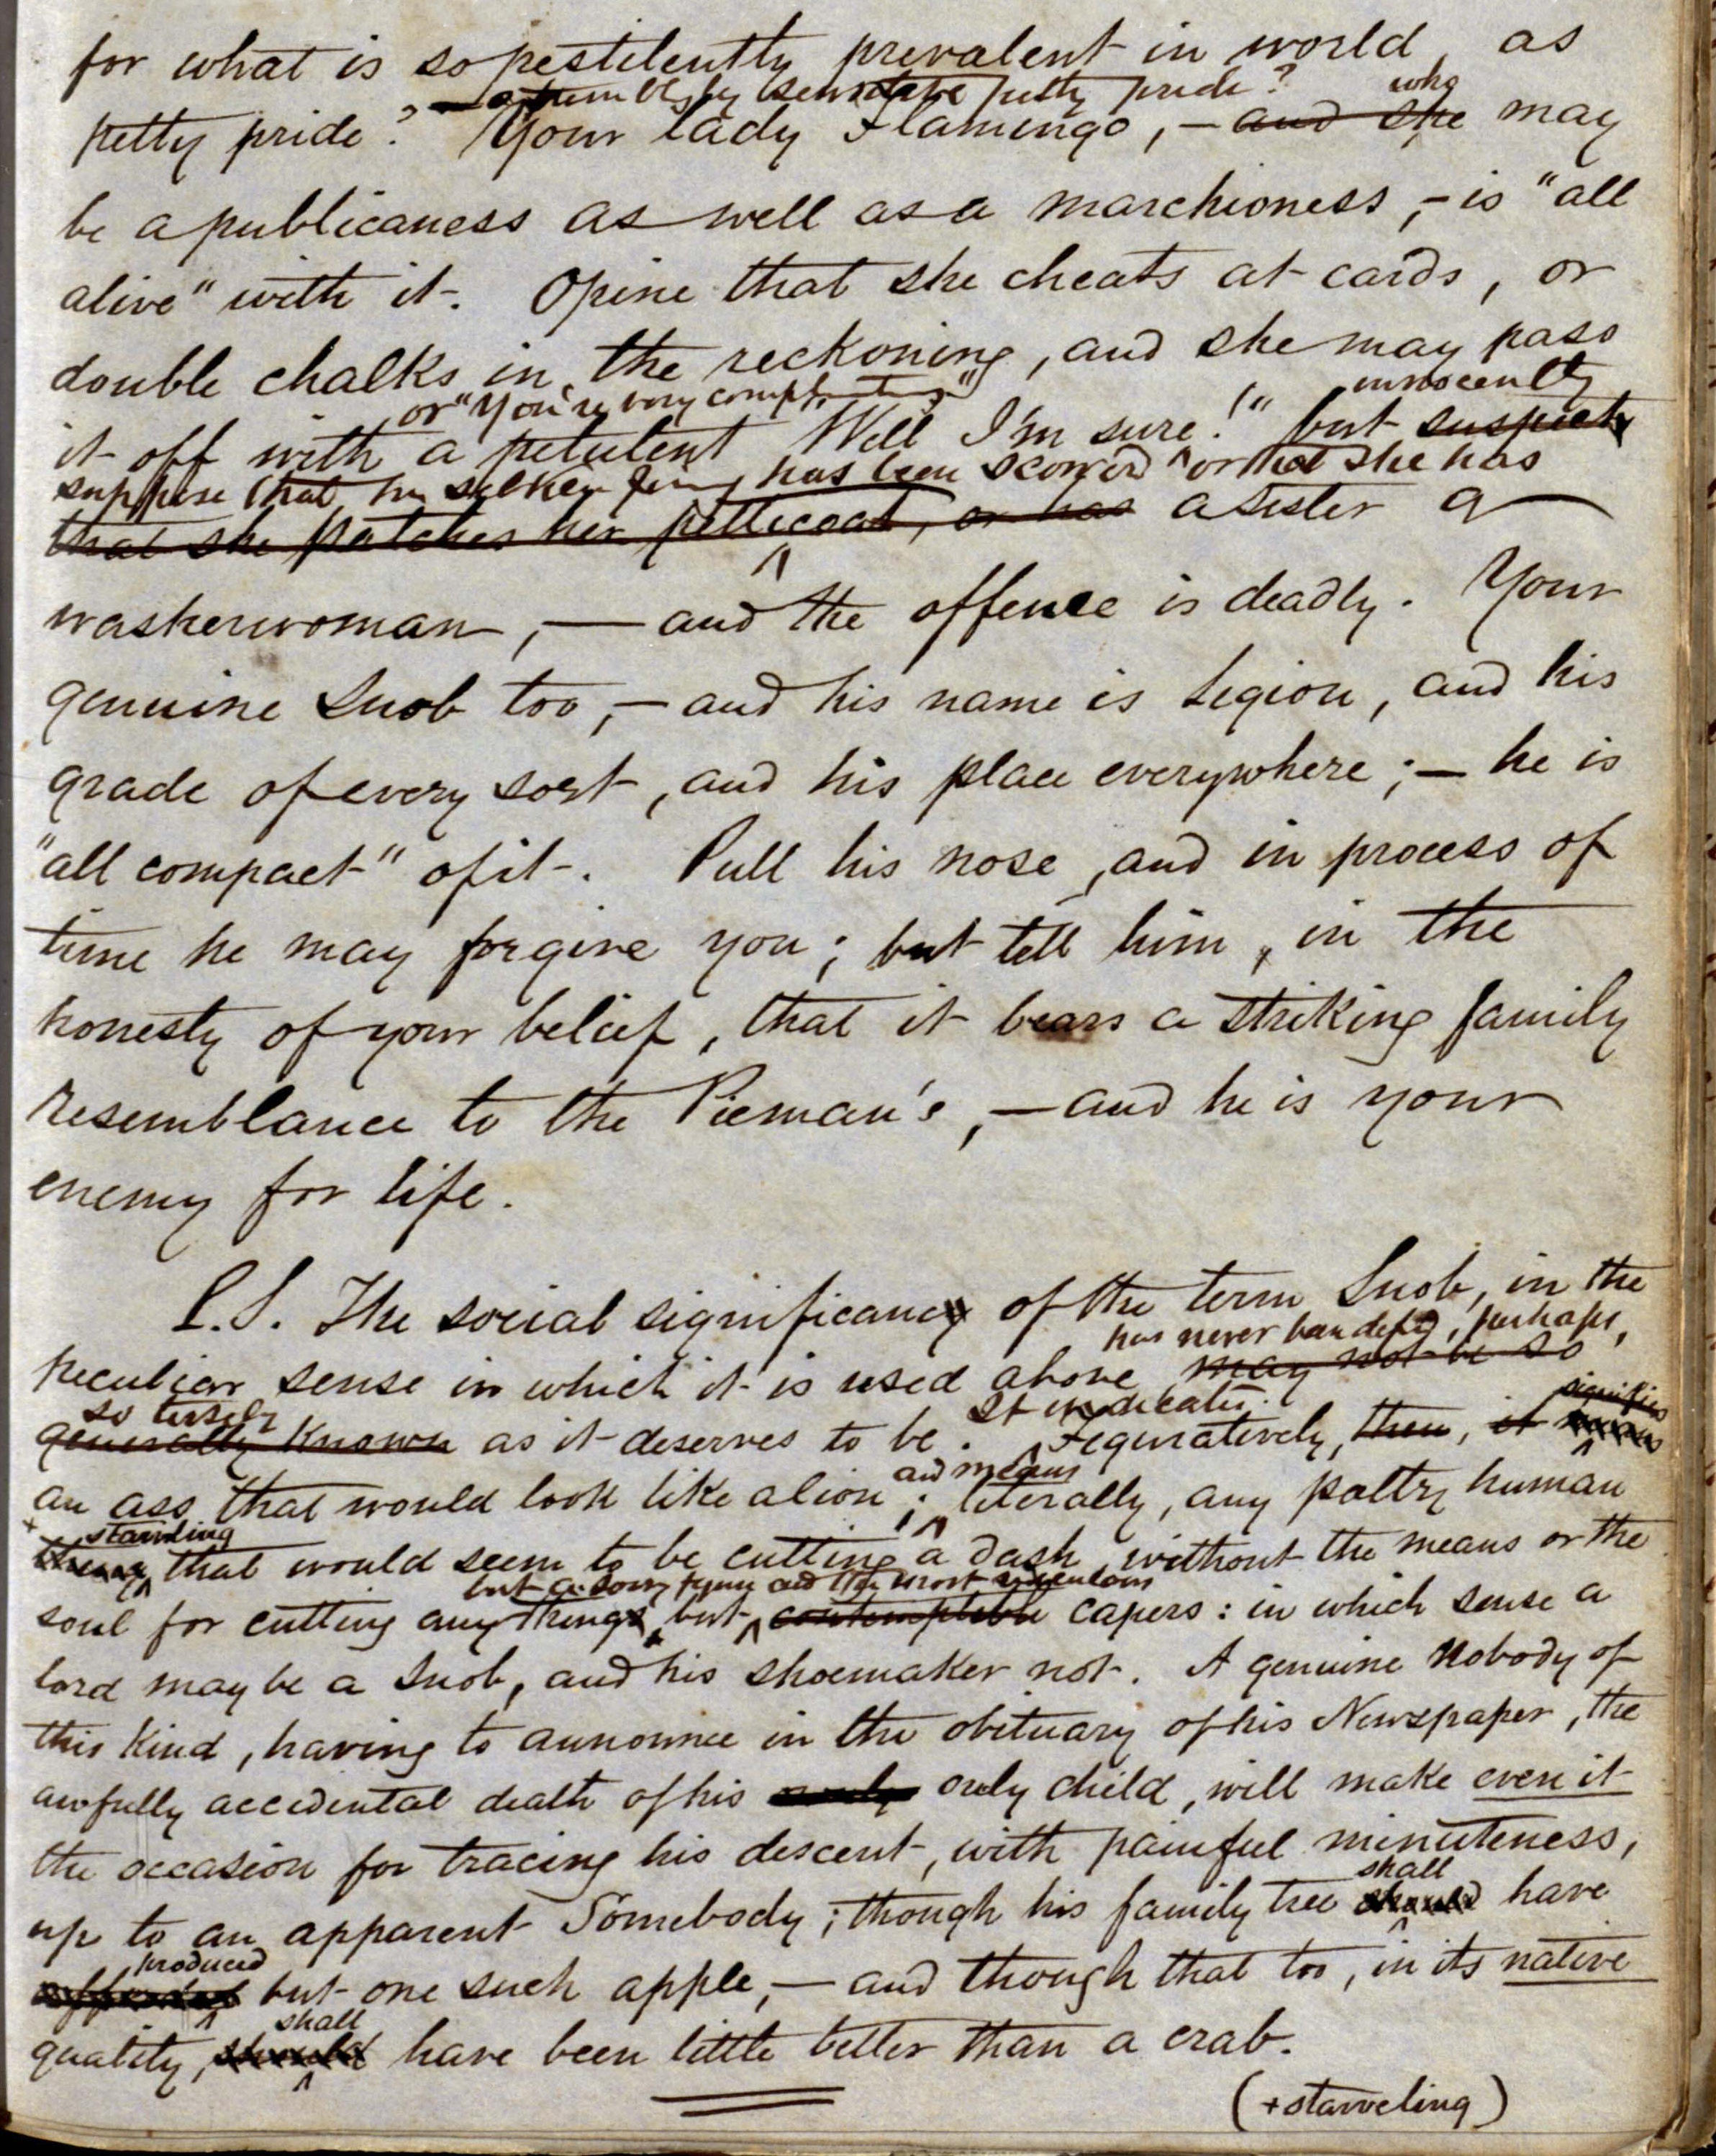 for what is so pestilently prevalent in world, as
petty pride?
petty pride? Your lady Flamingo, — and she who may
be a publicaness as well as a marchioness, — is "all
alive" with it. Opine that she cheats at cards, or
double chalks in the reckoning, and she may pass
or "You're very
innocently
it off with a petulent Well I'm sure!" but suspect
suppose that her silken has been scoured or that she has
that she patches her petticoat, or has a sister a
washerwoman, — and the offence is deadly. Your
genuine Snob too, — and his name is Legion, and his
grade of every sort, and his place everywhere; — he is
"all compact" of it. Pull his nose, and in process of
time he may forgive you; but tell him, in the
honesty of your belief, that it bears a striking family
resemblance to the Pieman's, — and he is your
enemy for life.
P.S. The social significancy of the term Snob, in the
has never been defined, perhaps,
peculiar sense in which it is used above may not be so
so tersely
It indicates
signifies
generally known as it deserves to be. Figuratively, then, it
and means
an ass that would look like a lion; literally, any paltry human
+ starvling
thing that would seem to be cutting a dash, without the means or the
but a sorry figure and the most ridiculous
soul for cutting any things, but contemptible capers: in which sense a
lord may be a Snob, and his shoemaker not. A genuine Nobody of
this kind, having to announce in the obituary of his Newspaper, the
awfully accidental death of his only only child, will make even it
the occasion for tracing his descent, with painful minuteness,
shall
up to an apparent Somebody; though his family tree should have
produced
but one such apple, — and though that too, in its native
shall
quality, should have been little better than a crab.
(+ starveling)